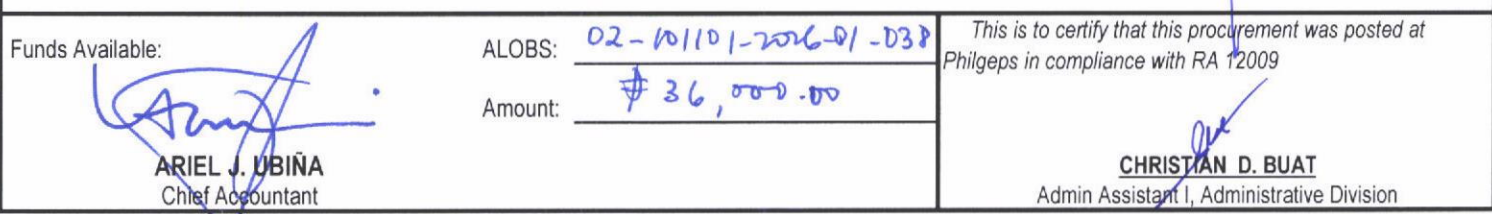 Funds Available:
ARIEL J. UBIÑA
Chief Accountant
ALOBS: 02-101101-2026-01-038
Amount: ₱ 36,000.00
This is to certify that this procurement was posted at
Philgeps in compliance with RA 12009
CHRISTIAN D. BUAT
Admin Assistant I, Administrative Division